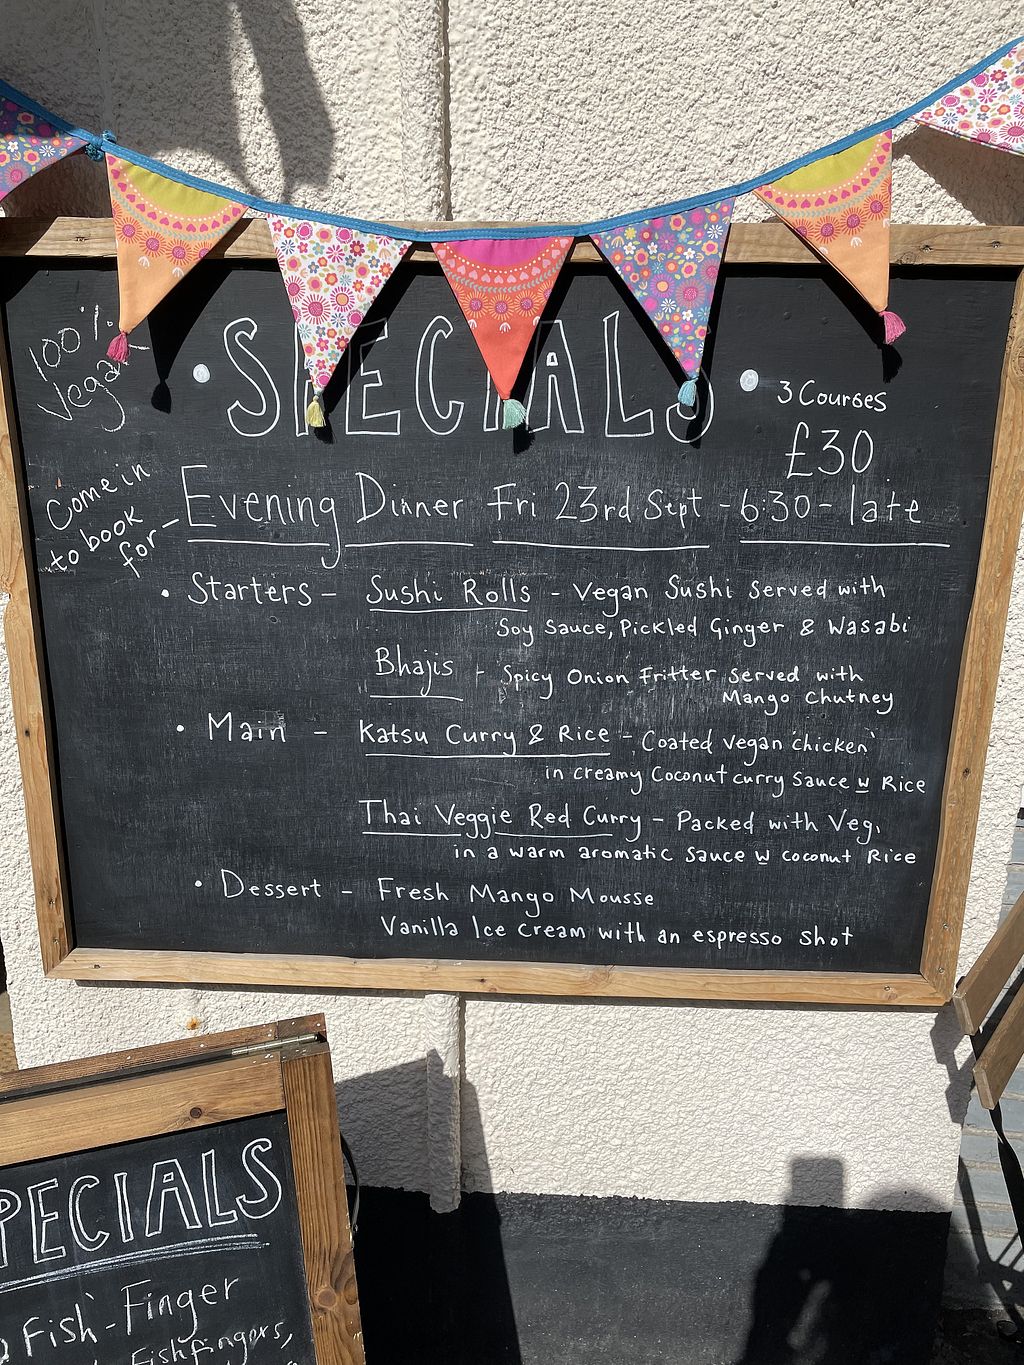 100% Vegan
• SPECIALS •
3 Courses
£30
Come in
to book
for -
Evening Dinner Fri 23rd Sept - 6:30 - late
• Starters - Sushi Rolls - Vegan Sushi Served with
Soy Sauce, Pickled Ginger & Wasabi
Bhajis - Spicy Onion Fritter Served with
Mango Chutney
• Main - Katsu Curry & Rice - Coated vegan 'chicken'
in creamy Coconut curry Sauce w Rice
Thai Veggie Red Curry - Packed with Veg,
in a warm aromatic Sauce w coconut Rice
• Dessert - Fresh Mango Mousse
Vanilla Ice cream with an espresso shot
PECIALS
Fish'-Finger
Fishfingers,